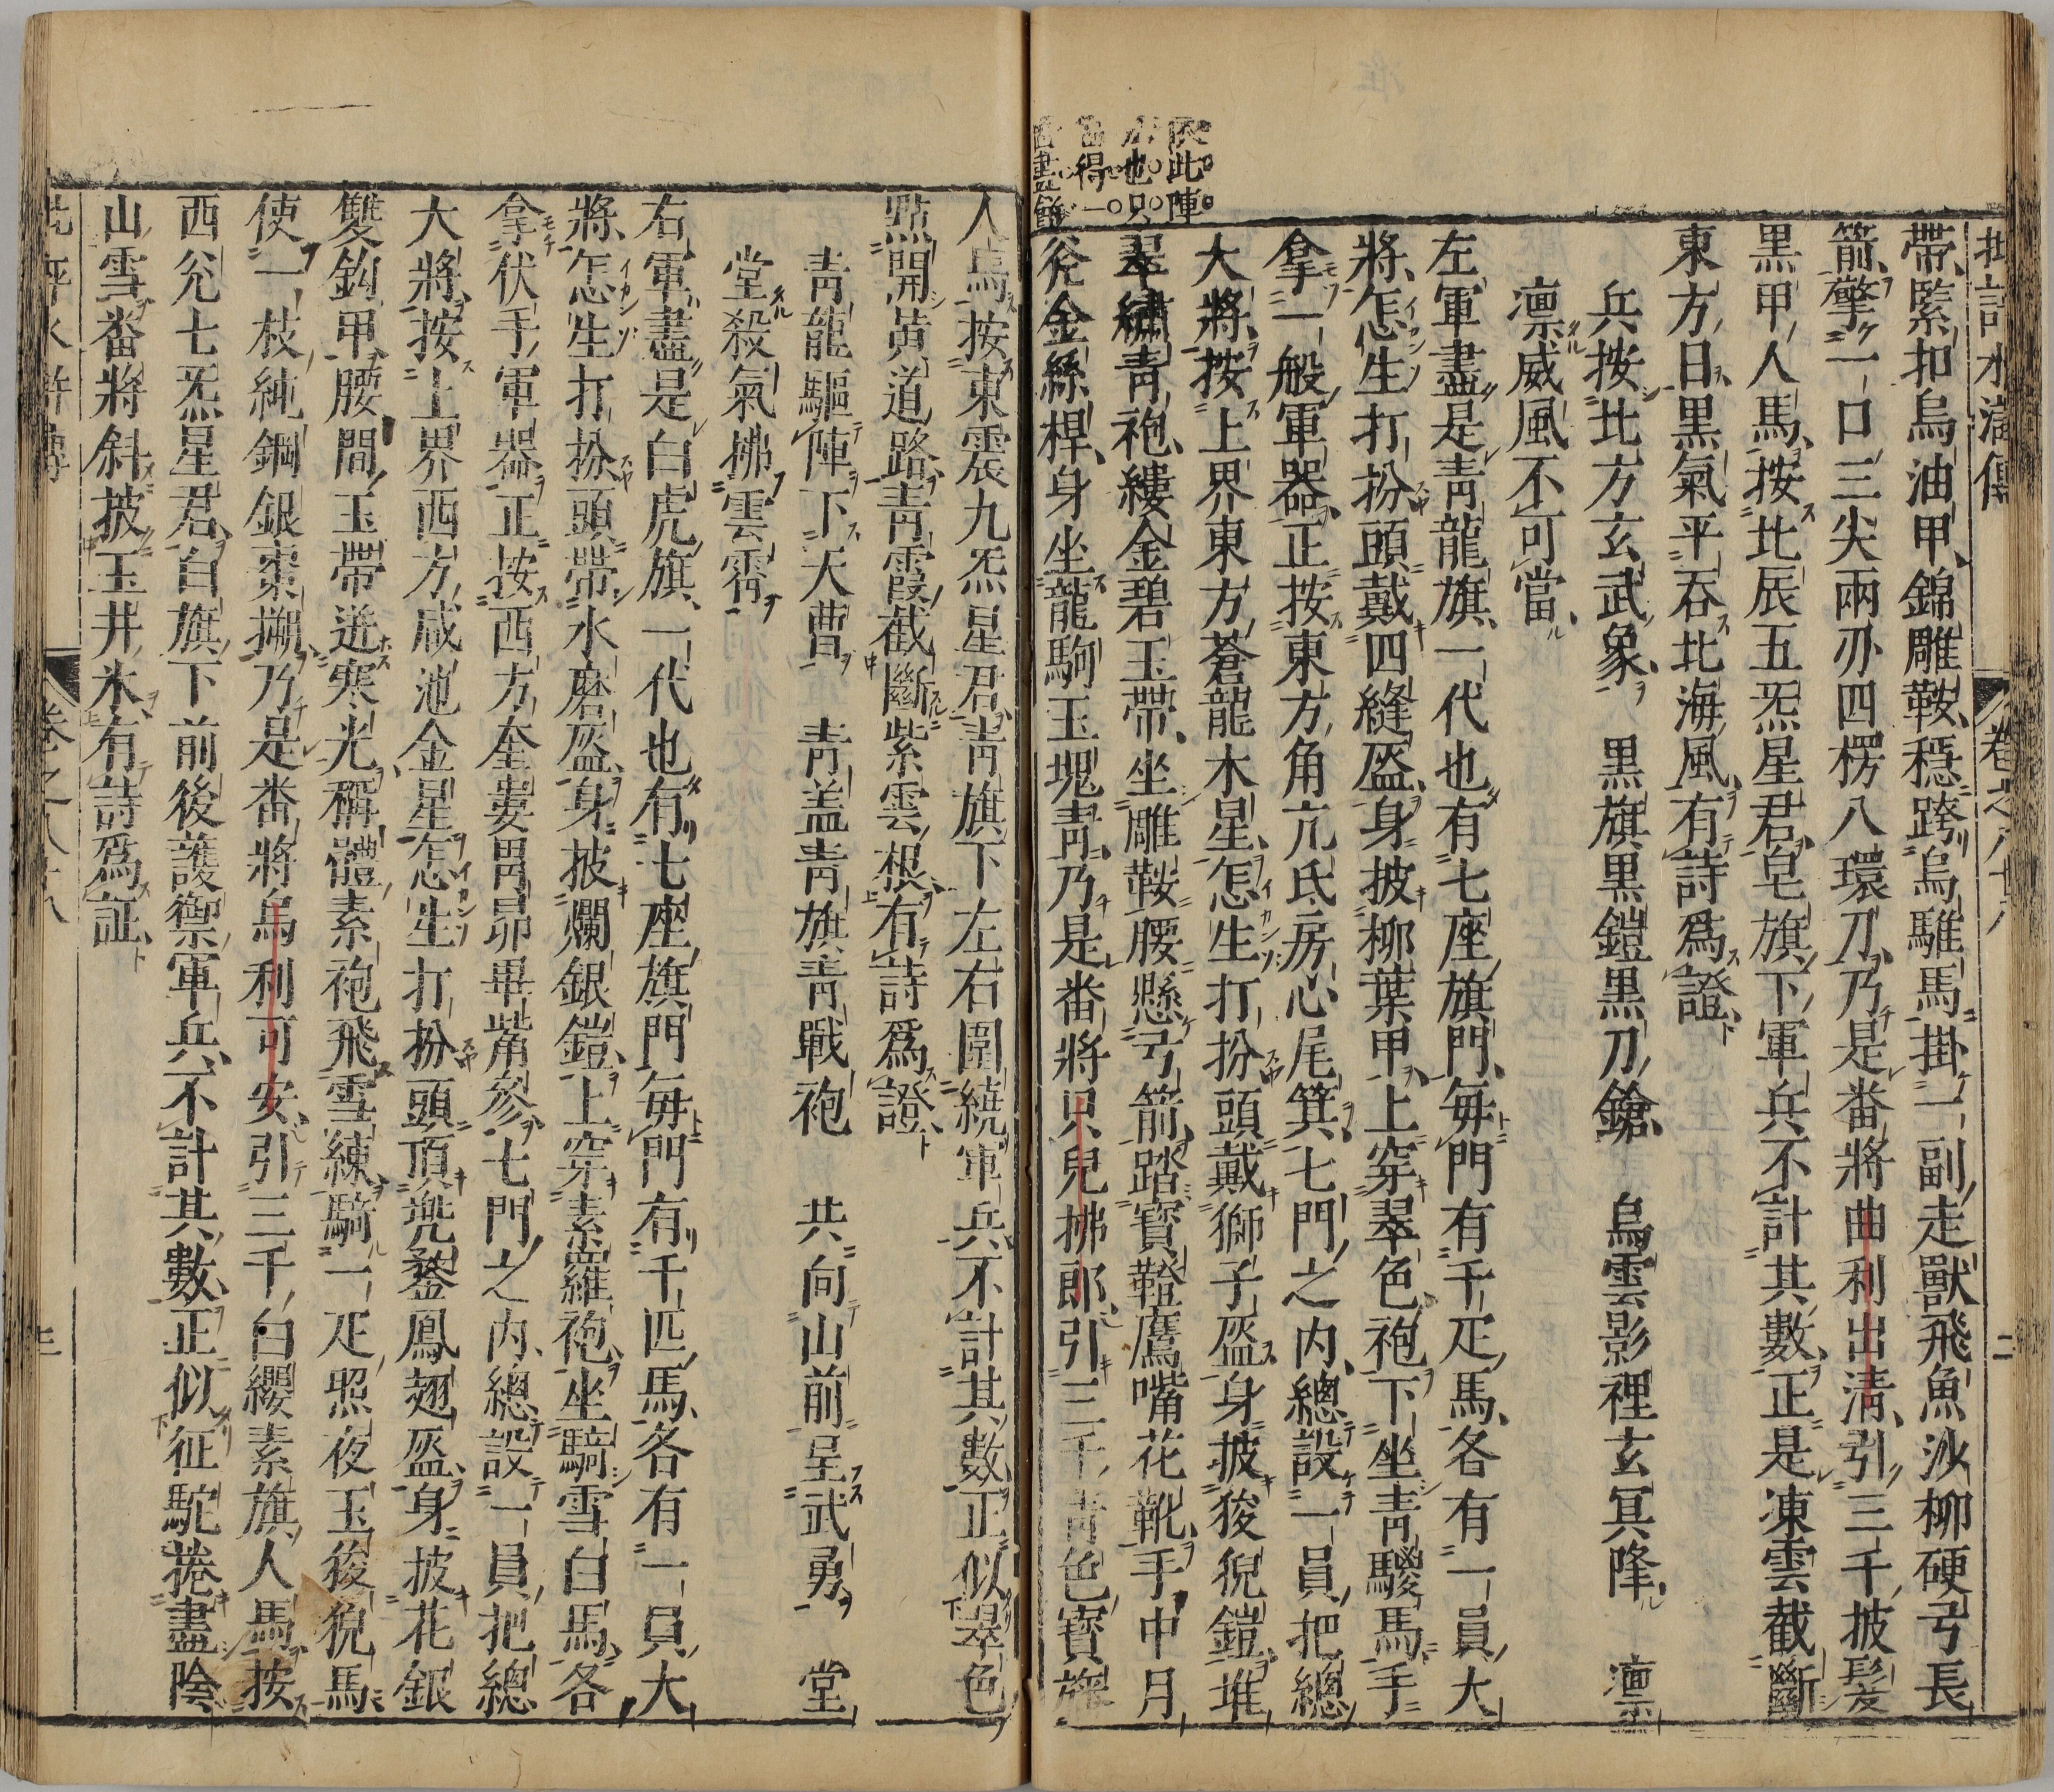 帶、緊扣烏油甲、錦雕鞍、穩跨烏騅馬、掛一副走獸飛魚沙柳硬弓長
箭、擎一口三尖兩刃四楞八環刀、乃是畨將曲利出清、引三千披髮
黒甲人馬、按北辰五炁星君、皂旗下、軍兵不計其數、正是凍雲截斷
東方日、黒氣平吞北海風、有詩為證、
兵按北方玄武象、 黒旗黒鎧黒刀鎗、 烏雲影裡玄冥降 凛
凛威風不可當、
左軍盡是青龍旗、一代也有七座旗門、每門有千疋馬、各有一員大
將、怎生打扮、頭戴四縫盔、身披柳葉甲、上穿翠色袍、下坐青騣馬、手
拿一般軍器、正按東方角亢氐房心尾箕、七門之内、總設一員把總
大將、按上界東方蒼龍木星、怎生打扮、頭戴獅子盔、身披狻猊鎧、堆
翠繡青袍、縷金碧玉帶、坐雕鞍、腰懸弓箭、踏寶鐙、鷹嘴花靴、手中月
斧金絲桿、身坐龍駒玉塊青、乃是畨將只兒拂郎、引三千青色寳旛
依此陣
也只
得一
人馬、按東震九炁星君、青旗下、左右圍繞軍兵、不計其數、正似翠色
㸃開黄道路、青霞截斷紫雲根、有詩為證、
青龍驅陣下天曹 青盖青旗青戰袍 共向山前呈武勇 堂
堂殺氣拂雲霄
右軍盡是白虎旗、一代也有七座旗門、每門有千匹馬、各有一員大
將、怎生打扮、頭帶水磨盔、身披爛銀鎧、上穿素羅袍、坐騎雪白馬、各
拿伏手軍器、正按西方奎婁胃昴畢觜參、七門之内、總設一員把總
大將、按上界西方咸池金星、怎生打扮、頭頂兠鍪鳳翅盔、身披花銀
雙鈎甲、腰間玉帶迸寒光、稱體素袍飛雪練、騎一疋照夜玉狻猊馬、
使一枝純鋼銀棗搠、乃是畨將烏利可安、引三千白纓素旗人馬、按
西兊七炁星君、白旗下、前後護御軍兵、不計其數、正似征駝捲盡陰
山雪、畨將斜披玉井氷、有詩為証、
卷之八十八
二
三